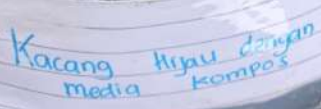 Kacang Hijau dengan
media kompos